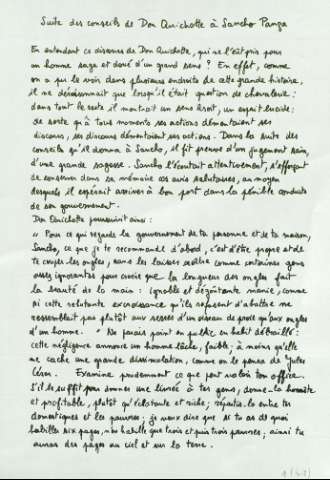 Suite des conseils de Don Quichotte à Sancho Pança
En entendant ce discours de Don Quichotte, qui ne l'eût pris pour
un homme sage et doué d'un grand sens ? En effet, comme
on a pu le voir dans plusieurs endroits de cette grande histoire,
il ne déraisonnait que lorsqu'il était question de chevalerie :
dans tout le reste il montrait un sens droit, un esprit lucide :
de sorte qu'à tous moments ses actions démentaient ses
discours, ses discours démentaient ses actions. Dans la suite des
conseils qu'il donna à Sancho, il fit preuve d'un jugement sain,
d'une grande sagesse. Sancho l'écoutait attentivement, s'efforçant
de conserver dans sa mémoire ces avis salutaires, au moyen
desquels il espérait arriver à bon port dans la pénible conduite
de son gouvernement.
Don Quichotte poursuivit ainsi :
" Pour ce qui regarde le gouvernement de ta personne et de ta maison,
Sancho, ce que je te recommande d'abord, c'est d'être propre et de
te couper les ongles, sans les laisser croître comme certaines gens
assez ignorantes pour croire que la longueur des ongles fait
la beauté de la main : ignoble et dégoûtante manie, comme
si cette rebutante excroissance qu'ils refusent d'abattre ne
ressemblait pas plutôt aux serres d'un oiseau de proie qu'aux ongles
d'un homme. " Ne parais point en public en habit débraillé :
cette négligence annonce un homme lâche, faible ; à moins qu'elle
ne cache une grande dissimulation, comme on le pensa de Jules
César. - Examine prudemment ce que peut valoir ton office.
S'il te suffit pour donner une livrée à tes gens, donne-la honnête
et profitable, plutôt qu'éclatante et riche ; répartis-la entre tes
domestiques et les pauvres : je veux dire que si tu as de quoi
habiller six pages, n'en habille que trois et puis trois pauvres ; ainsi tu
auras des pages au ciel et sur la terre.